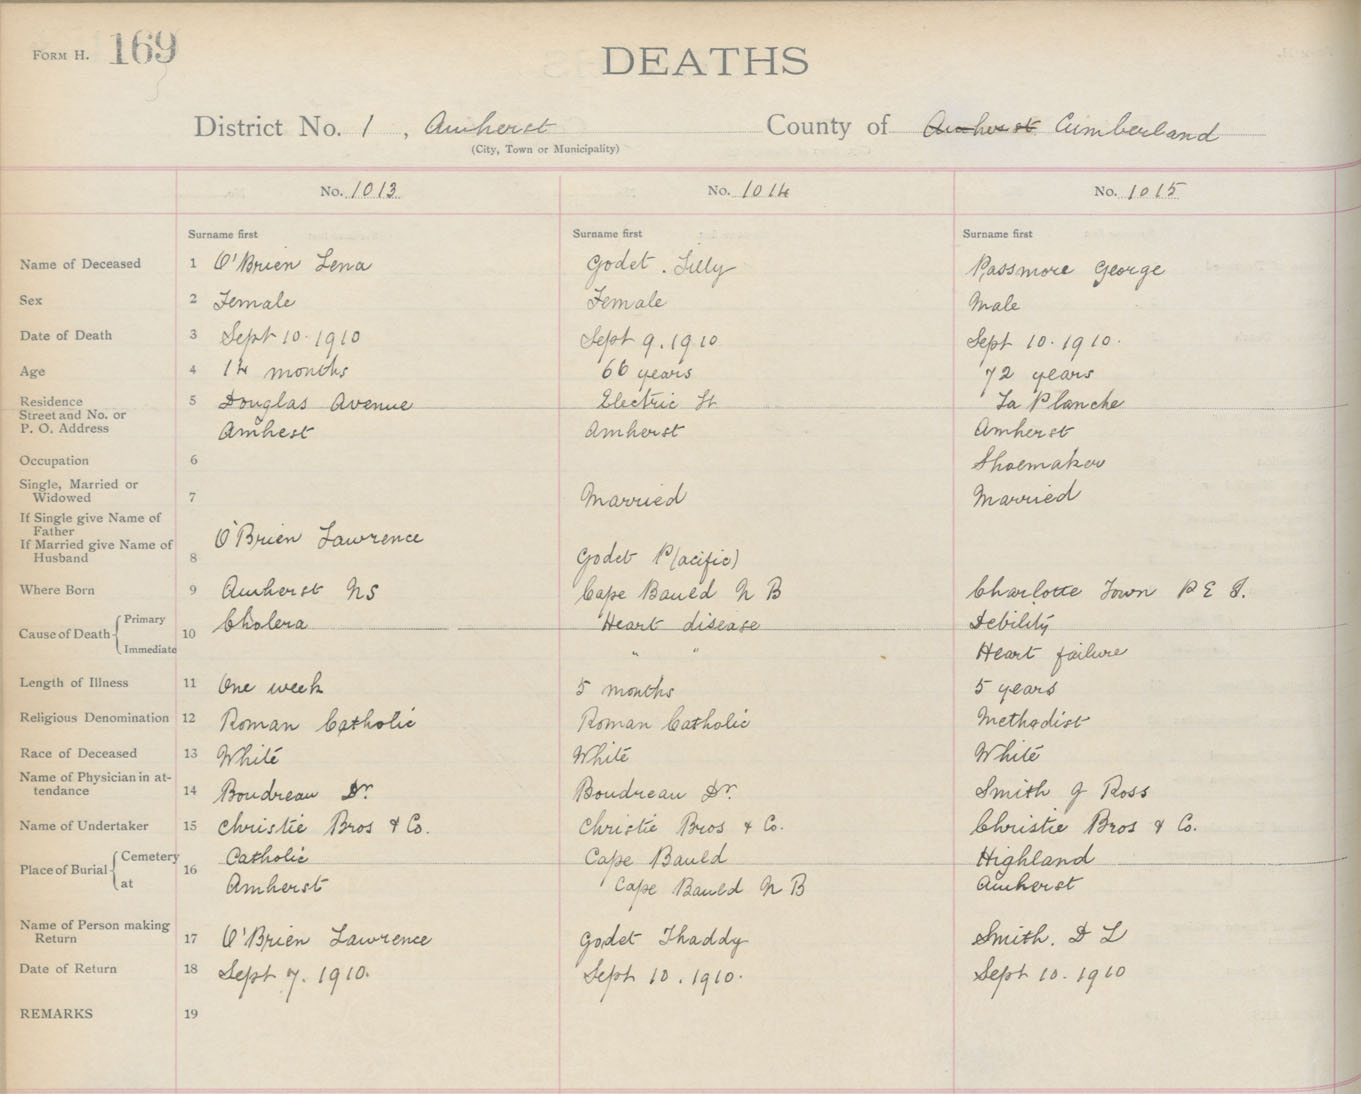 FORM H. 169
DEATHS
District No. 1, Amherst County of Amherst Cumberland
(City, Town or Municipality)
No. 1013 No. 1014 No. 1015
Surname first Surname first Surname first
Name of Deceased 1 O'Brien Lena Godet. Lilly Passmore George
Sex 2 Female Female Male
Date of Death 3 Sept 10. 1910 Sept 9. 1910 Sept 10. 1910.
Age 4 14 months 66 years 72 years
Residence 5 Douglas Avenue Electric St La Planche
Street and No. or
P. O. Address Amhest Amherst Amherst
Occupation 6 Shoemaker
Single, Married or
Widowed 7 Married Married
If Single give Name of
Father O'Brien Lawrence
If Married give Name of
Husband 8 Godet P(acific)
Where Born 9 Amherst NS Cape Bauld N B Charlotte Town P E I.
Cause of Death Primary 10 Cholera Heart disease Debility
Immediate " " Heart failure
Length of Illness 11 One week 5 months 5 years
Religious Denomination 12 Roman Catholic Roman Catholic Methodist
Race of Deceased 13 White White White
Name of Physician in at-
tendance 14 Boudreau Dr. Boudreau Dr. Smith J Ross
Name of Undertaker 15 Christie Bros & Co. Christie Bros & Co. Christie Bros & Co.
Place of Burial Cemetery 16 Catholic Cape Bauld Highland
at Amherst Cape Bauld N B Amherst
Name of Person making
Return 17 O'Brien Lawrence Godet Thaddy Smith. D L
Date of Return 18 Sept 7. 1910. Sept 10. 1910. Sept 10. 1910
REMARKS 19